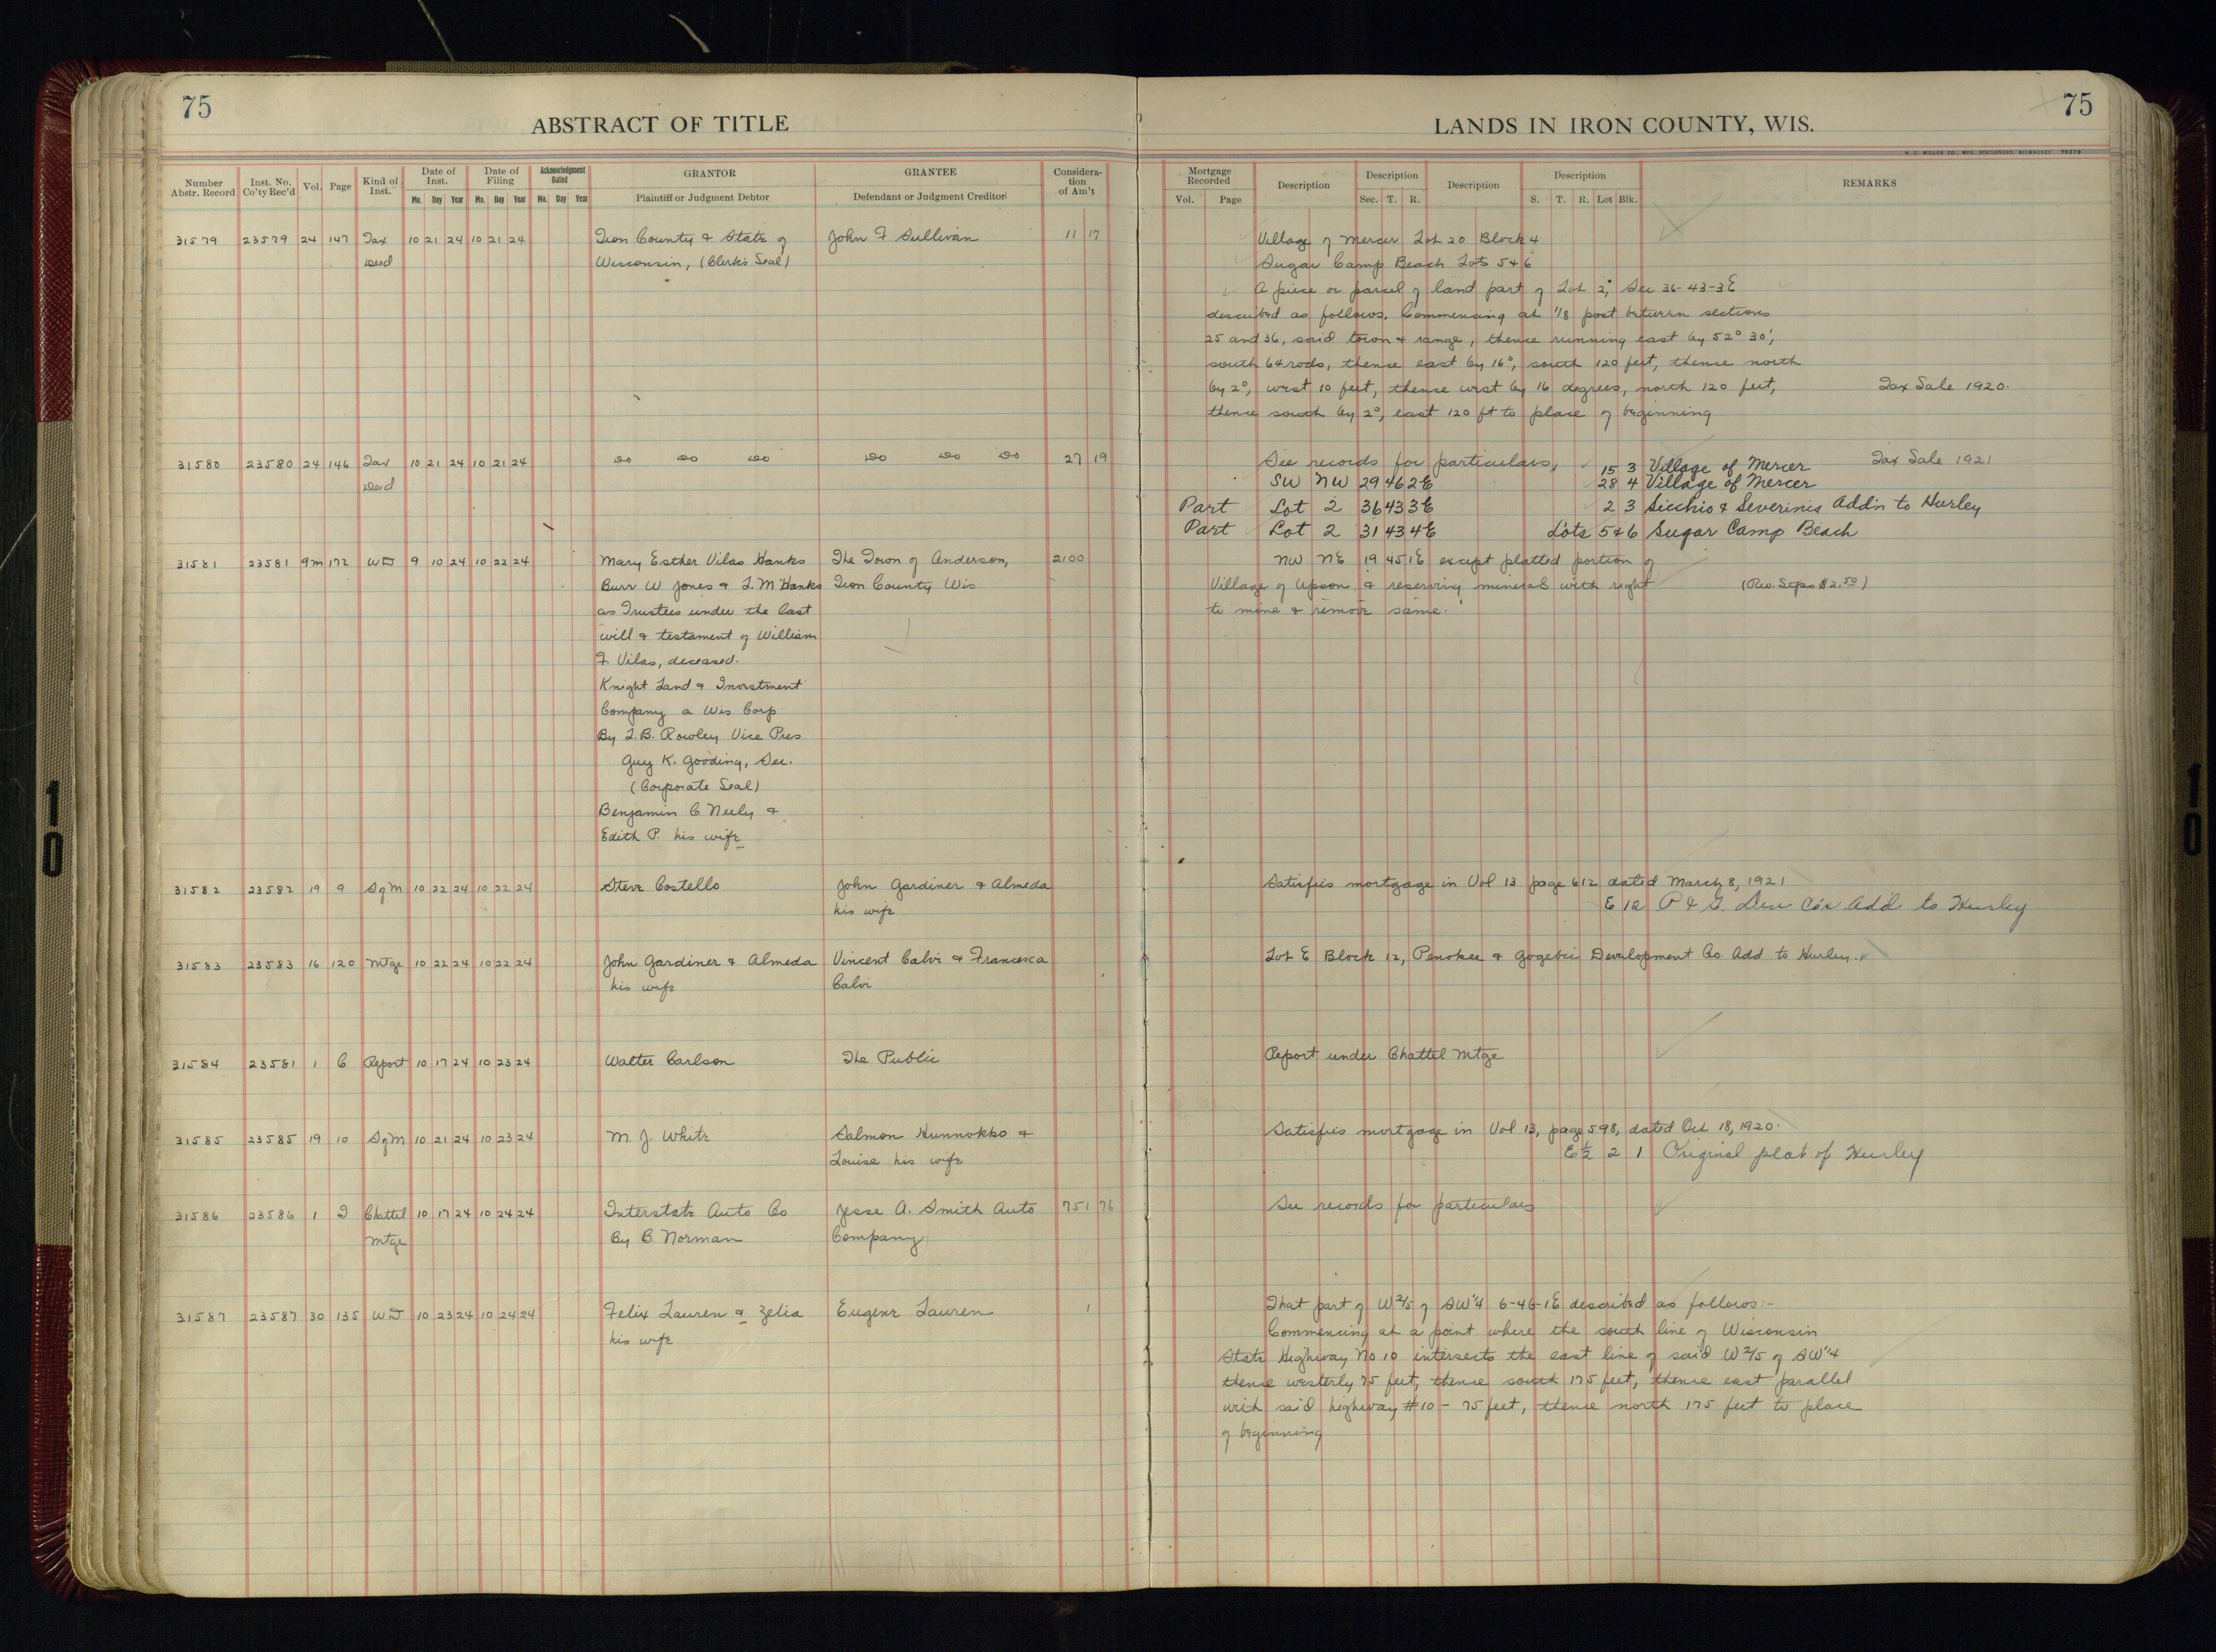 75
ABSTRACT OF TITLE
Number Abstr. Record
Inst. No. Co'ty Rec'd
Vol.
Page
Kind of Inst.
Date of Inst.
Mo. Day Year
Date of Filing
Mo. Day Year
Acknowledgment Dated
Mo. Day Year
GRANTOR
Plaintiff or Judgment Debtor
GRANTEE
Defendant or Judgment Creditor
Considera-
tion
of Am't
31579 23579 24 147 Tax 10 21 24 10 21 24 Iron County & State of John F Sullivan 11 17
Deed Wisconsin, (Clerk's Seal)
31580 23580 24 146 Tax 10 21 24 10 21 24 Do Do Do Do Do Do 27 19
Deed
31581 23581 9m 172 WD 9 10 24 10 22 24 Mary Esther Vilas Hanks The Town of Anderson, 2100
Burr W Jones & L. M Hanks Iron County Wis
as Trustees under the last
will & testament of William
F. Vilas, deceased.
Knight Land & Investment
Company a Wis Corp
By L. B. Rowley Vice Pres
Guy K. Gooding, Sec.
(Corporate Seal)
Benjamin C Neely &
Edith P. his wife
31582 23582 19 9 SgM 10 22 24 10 22 24 Steve Costello John Gardiner & Almeda
his wife
31583 23583 16 120 Mtge 10 22 24 10 22 24 John Gardiner & Almeda Vincent Calvi & Francesca
his wife Calvi
31584 23581 1 C Report 10 17 24 10 23 24 Walter Carlson The Public
31585 23585 19 10 SgM 10 21 24 10 23 24 M. J. White Salmon Hunnokko &
Louise his wife
31586 23586 1 I Chattel 10 17 24 10 24 24 Interstate Auto Co Jesse A. Smith Auto 751 76
Mtge By B. Norman Company
31587 23587 30 135 WD 10 23 24 10 24 24 Felix Lauren & Zelia Eugene Lauren 1
his wife
75
LANDS IN IRON COUNTY, WIS.
Mortgage Recorded
Vol. Page
Description
Description
Sec. T. R.
Description
Description
S. T. R. Lot Blk.
REMARKS
Village of Mercer Lot 20 Block 4
Sugar Camp Beach Lots 5 & 6
A piece or parcel of land part of Lot 2, Sec 36-43-3E
described as follows. Commencing at 1/8 post between sections
25 and 36, said town & range, thence running east by 52° 30',
south 64 rods, thence east by 16°, south 120 feet, thence north
by 2°, west 10 feet, thence west by 16 degrees, north 120 feet, Tax Sale 1920.
thence south by 2°, east 120 ft to place of beginning
See records for particulars, 15 3 Village of Mercer Tax Sale 1921
SW NW 29 46 2E 28 4 Village of Mercer
Part Lot 2 36 43 3E 2 3 Sicchio & Severinis Addn to Hurley
Part Lot 2 31 43 4E Lots 5 & 6 Sugar Camp Beach
NW NE 19 45 1E except platted portion of
Village of Upson & reserving minerals with right (Rev. Stps $2.50)
to mine & remove same.
Satisfies mortgage in Vol 13 page 612 dated March 8, 1921
E 12 P & G. Dev Co's Add to Hurley
Lot E Block 12, Penokee & Gogebic Development Co Add to Hurley.
Report under Chattel Mtge
Satisfies mortgage in Vol 13, page 598, dated Oct 18, 1920.
E½ 2 1 Original plat of Hurley
See records for particulars
That part of W 2/5 of SW¼ 6-46-1E described as follows:-
Commencing at a point where the south line of Wisconsin
State Highway No 10 intersects the east line of said W 2/5 of SW¼
thence westerly 75 feet, thence south 175 feet, thence east parallel
with said highway #10 - 75 feet, thence north 175 feet to place
of beginning
10
10